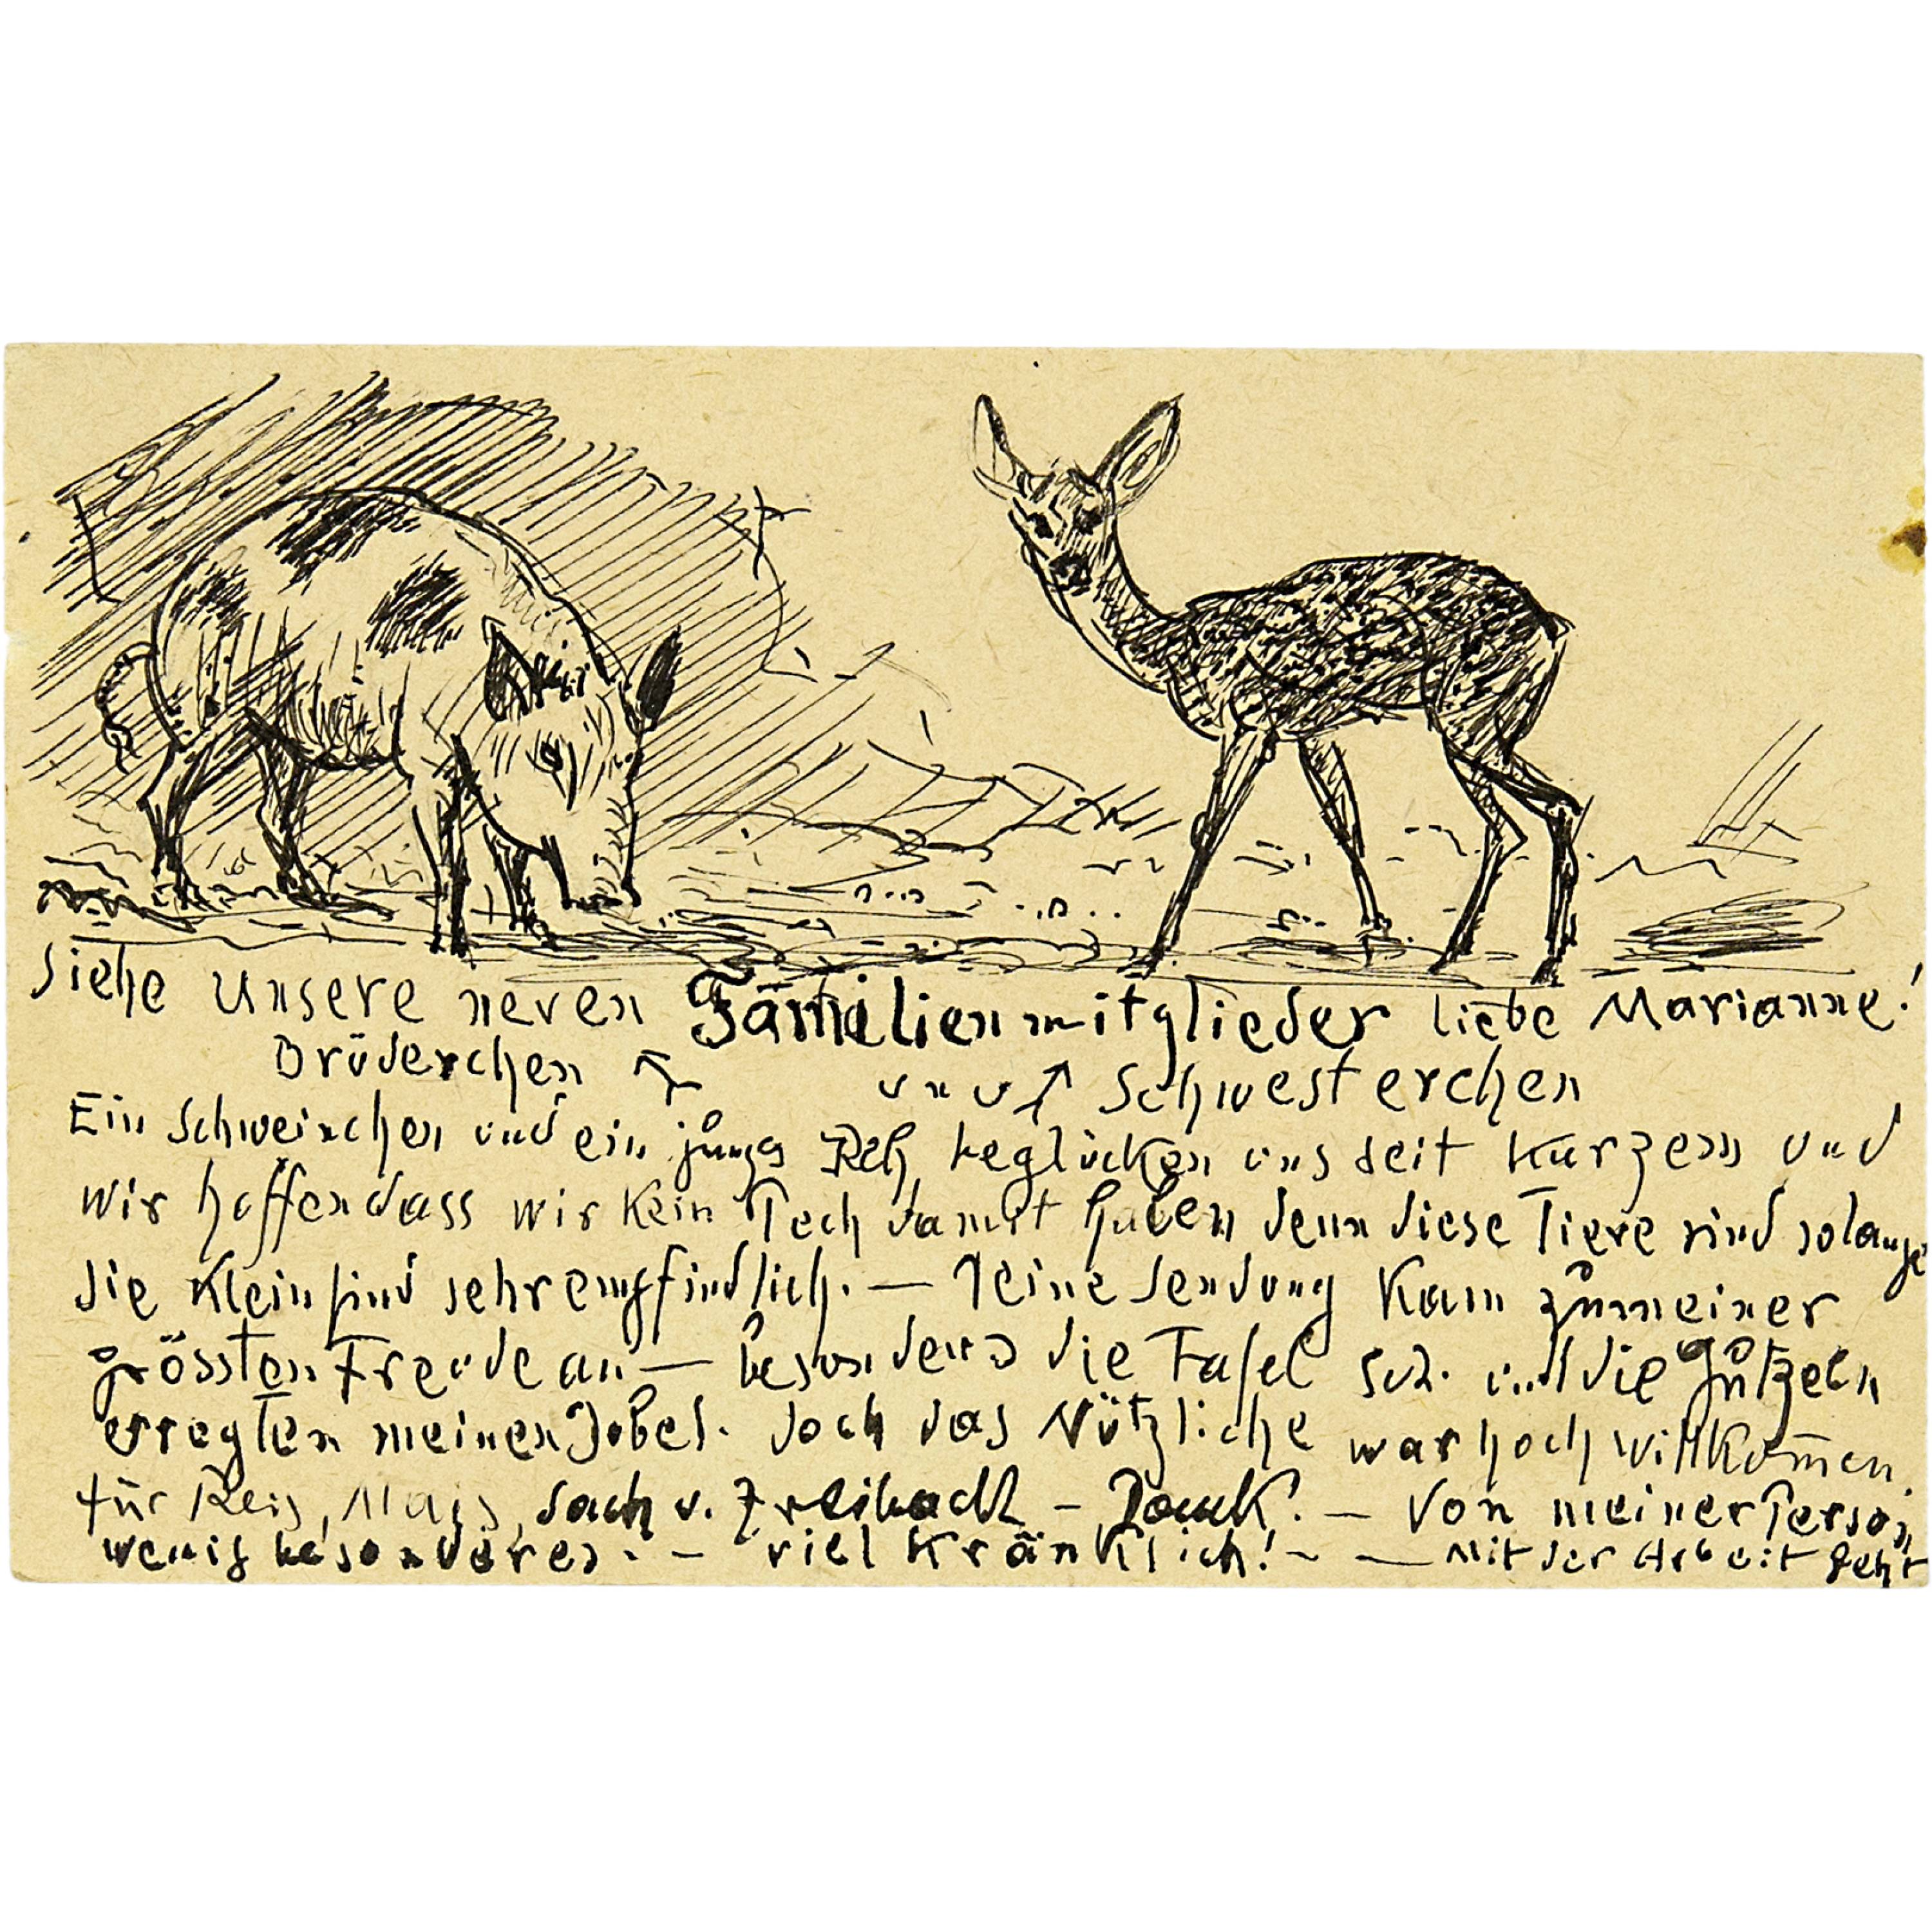 Siehe unsere neuen Familienmitglieder liebe Marianne!
Brüderchen und Schwesterchen
Ein Schweinchen und ein junges Reh beglücken uns seit kurzem und
wir hoffen dass wir kein Pech damit haben denn diese Tiere sind solange
sie klein sind sehr empfindlich. — Deine Sendung kam zu meiner
grössten Freude an — besonders die Tafel und die Gützeln
erregten meinen Jubel. Doch das Nützliche war hoch willkom̅en.
für Reis, Mais, v. Dank. — Von meiner Person
wenig besonderes. — viel Kränklich! — — Mit der Arbeit geht